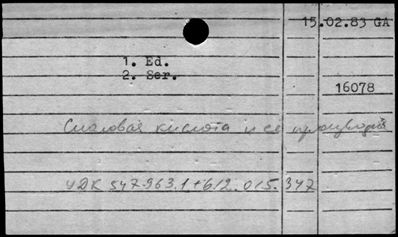 15.02.83 GA
1. Ed.
2. Ser.
16078
Сиаловая кислота и ее производные
УДК 547.963.1+612.015.347